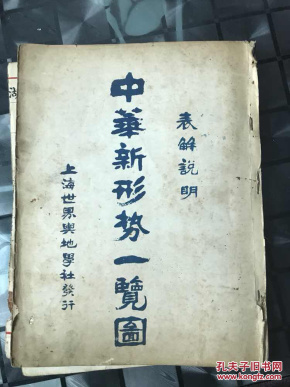 表解説明
中華新形势一覽圖
上海世界輿地學社發行
孔夫子旧书网